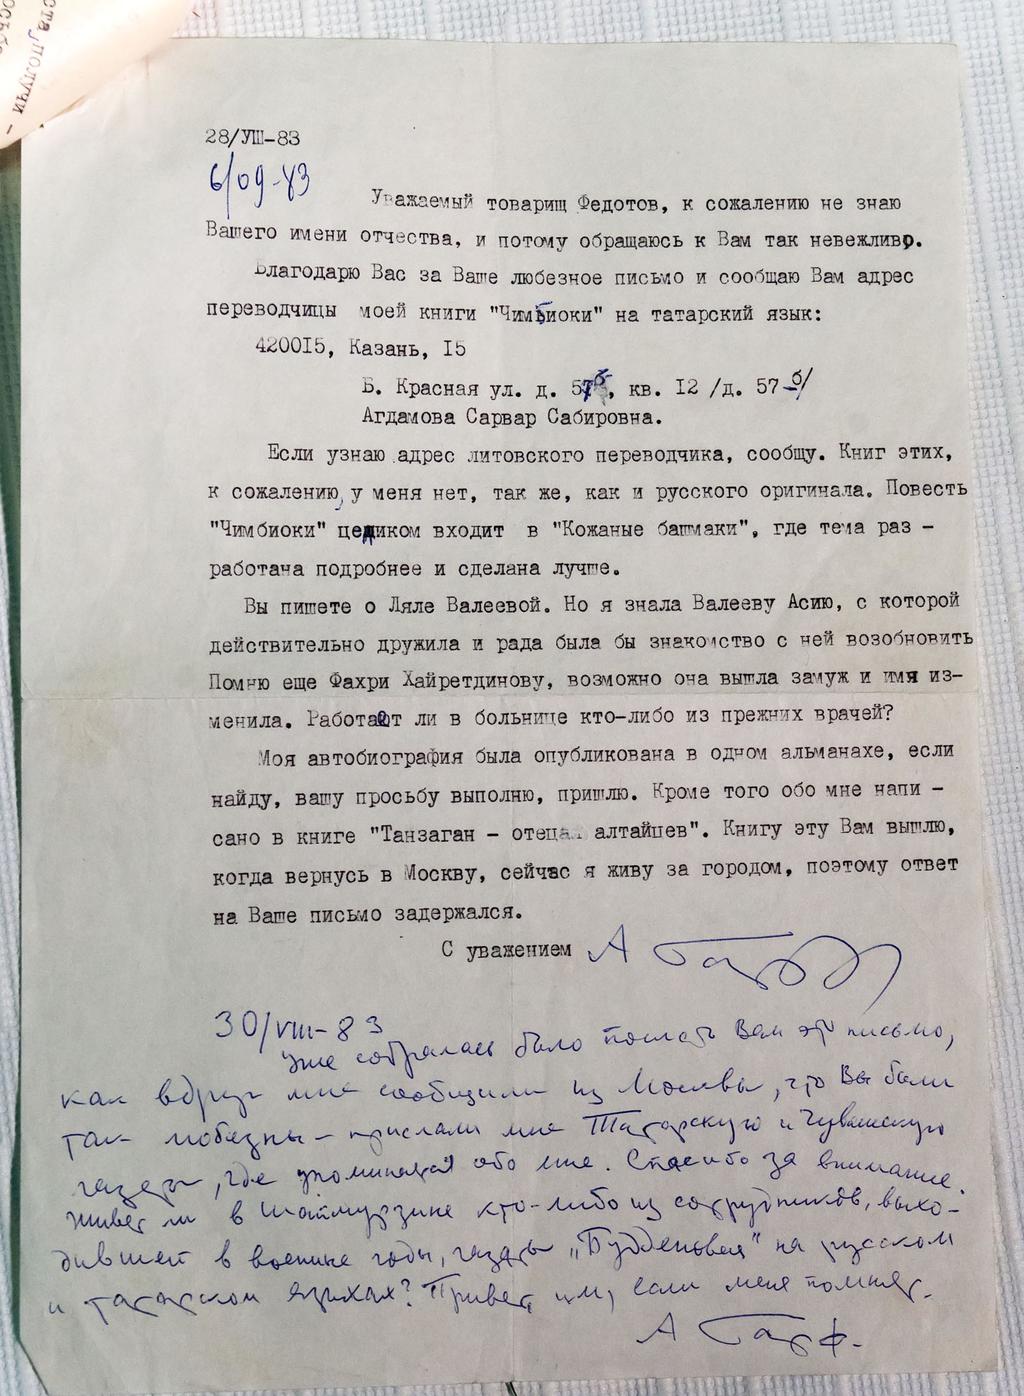 ста, получи -
28/УШ-83
6/09-83
Уважаемый товарищ Федотов, к сожалению не знаю
Вашего имени отчества, и потому обращаюсь к Вам так невежливо.
Благодарю Вас за Ваше любезное письмо и сообщаю Вам адрес
переводчицы моей книги "Чимбиоки" на татарский язык:
420015, Казань, 15
Б. Красная ул. д. 57б, кв. 12 /д. 57-б/
Агдамова Сарвар Сабировна.
Если узнаю адрес литовского переводчика, сообщу. Книг этих,
к сожалению, у меня нет, так же, как и русского оригинала. Повесть
"Чимбиоки" целиком входит в "Кожаные башмаки", где тема раз -
работана подробнее и сделана лучше.
Вы пишете о Ляле Валеевой. Но я знала Валееву Асию, с которой
действительно дружила и рада была бы знакомство с ней возобновить
Помню еще Фахри Хайретдинову, возможно она вышла замуж и имя из-
менила. Работает ли в больнице кто-либо из прежних врачей?
Моя автобиография была опубликована в одном альманахе, если
найду, вашу просьбу выполню, пришлю. Кроме того обо мне напи -
сано в книге "Танзаган - отец алтайцев". Книгу эту Вам вышлю,
когда вернусь в Москву, сейчас я живу за городом, поэтому ответ
на Ваше письмо задержался.
С уважением А Гарф
30/VIII-83
Уже собралась было послать Вам это письмо,
как вдруг мне сообщили из Москвы, что Вы были
так любезны - прислали мне Татарскую и Чувашскую
газеты, где упоминается обо мне. Спасибо за внимание.
Живет ли в Шаймурзине кто-либо из сотрудников, выхо-
дившей в военные годы, газеты „Буденовец" на русском
и татарском языках? Привет им, если меня помнят.
А Гарф.